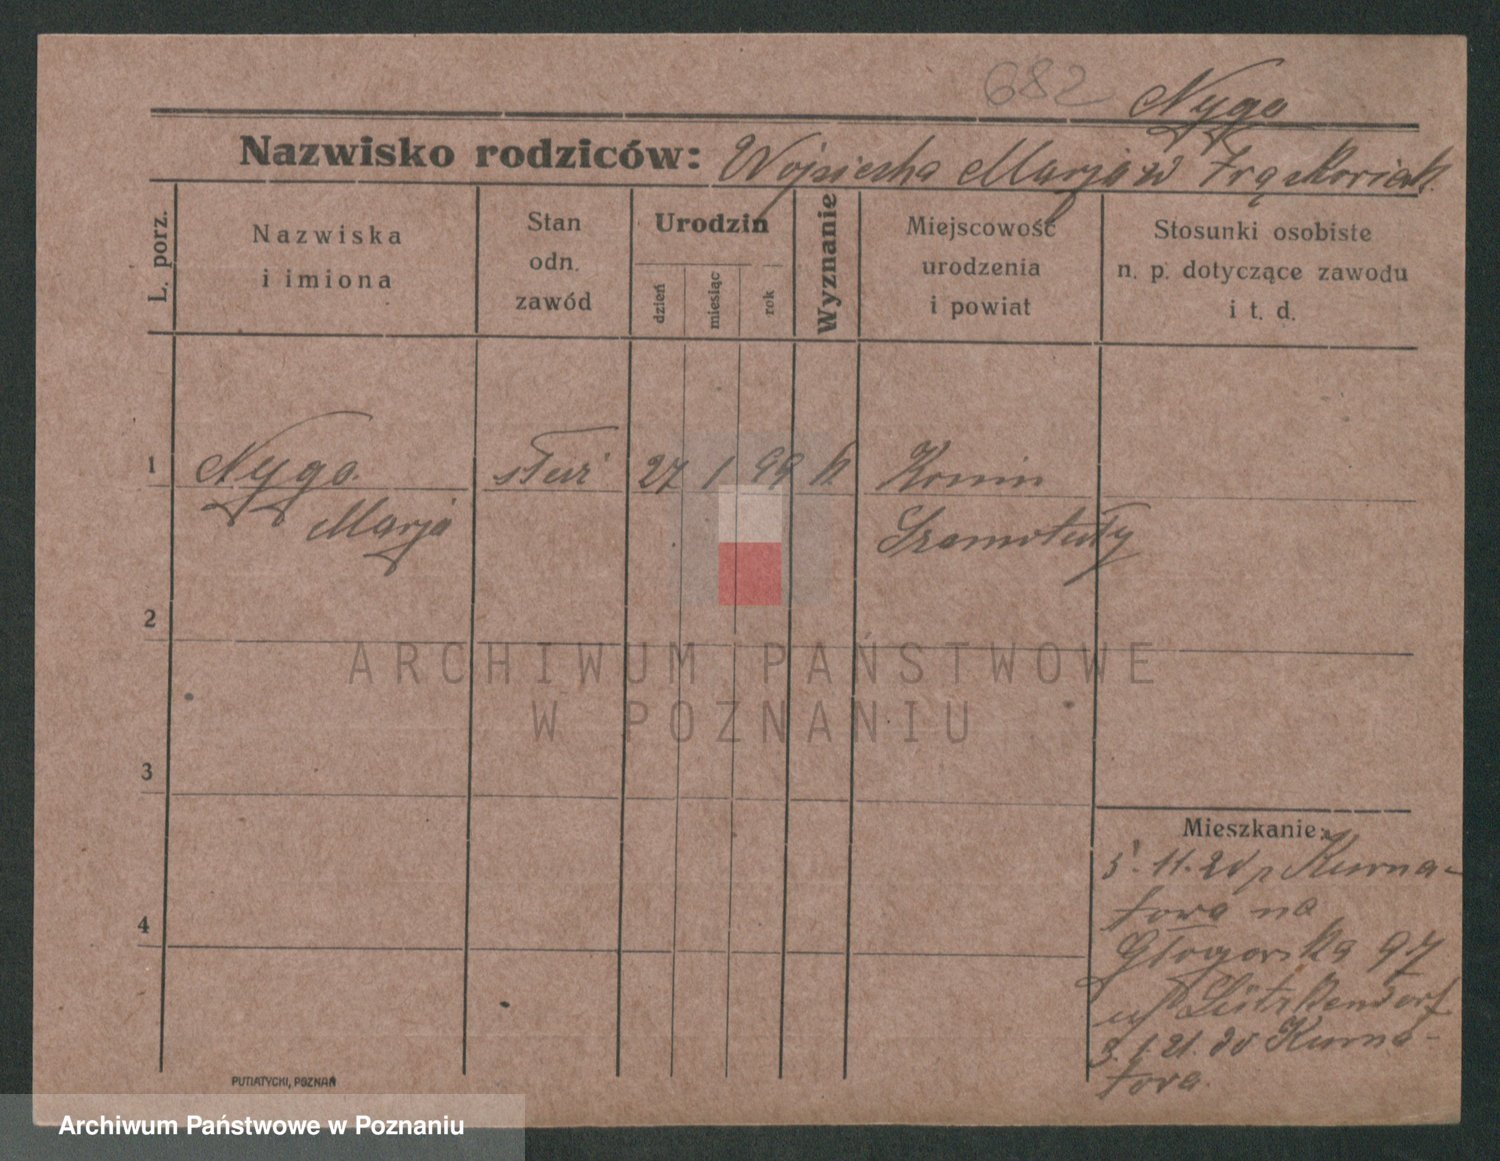 682 Nygo
Nazwisko rodziców: Wojciecha Marja
L. porz.
Nazwiska
i imiona
Stan
odn.
zawód
Urodzin
dzień
miesiąc
rok
Wyznanie
Miejscowość
urodzenia
i powiat
Stosunki osobiste
n. p. dotyczące zawodu
i t. d.
1 Nygo 27 1 99 k Konin
Marja Szamotuły
2
ARCHIWUM PAŃSTWOWE
W POZNANIU
3
Mieszkanie:
5. 11. 20 Kurna-
towa na
4
Głogowska 97
Lützkendorf
3. 1 21. do Kurna-
towa.
PUTIATYCKI, POZNAŃ
Archiwum Państwowe w Poznaniu